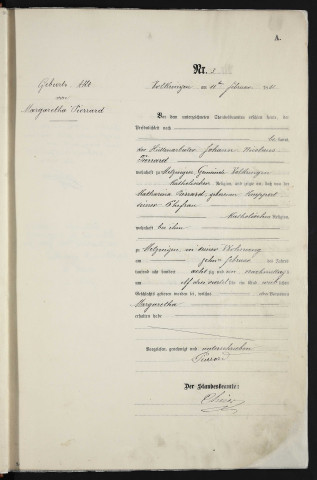 A.
Nr. 5
Geburts Akt
von
Margaretha Pierrard
am 11ten Februar
Vor dem unterzeichneten Standesbeamten erschien heute, der
Persönlichkeit nach
kannt,
der Hüttenarbeiter Johann Nicolaus
Pierrard
wohnhaft zu Metzingen Gemeinde Volkringen
Katholischer Religion, und zeigte an, daß von der
Katharina Pierrard, geborenen Ruppert
seiner Ehefrau
Katholischer Religion,
wohnhaft bei ihm
zu Metzingen, in seiner Wohnung
am zehnten Februar des Jahres
tausend acht hundert acht zig und nachmittags
um elf Uhr ein Kind weiblichen
Geschlechts geboren worden sei, welches Vornamen
Margaretha
erhalten habe
Vorgelesen, genehmigt und unterschrieben
Pierrard
Der Standesbeamte: